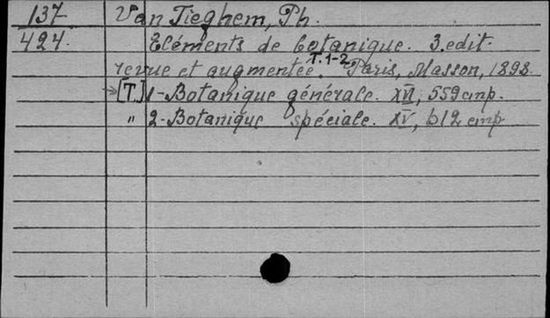 137 Van Tieghem, Ph.
424. Eléments de botanique. 3. edit.
revue et augmentée. T.1-2. Paris, Masson, 1898.
[T.] 1-Botanique générale. XVI, 559 cmp.
" 2-Botanique spéciale. XV, 612 cmp